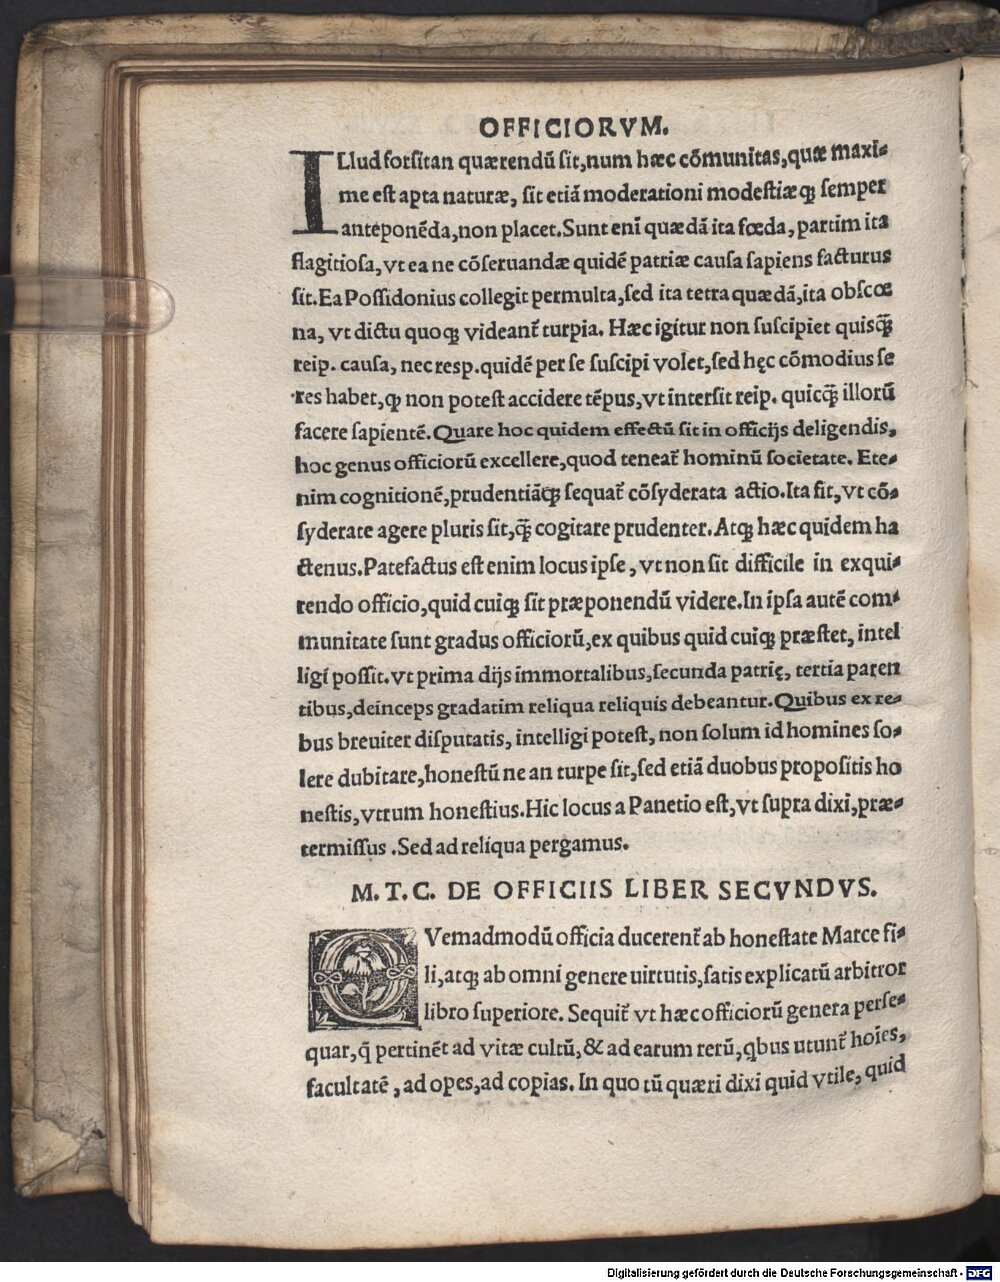 OFFICIORVM.
ILlud forsitan quærendū sit,num hæc cōmunitas,quæ maxi-
me est apta naturæ, sit etiā moderationi modestiæq; semper
anteponēda,non placet.Sunt eni quædā ita fœda, partim ita
flagitiosa,vt ea ne cōseruandæ quidē patriæ causa sapiens facturus
sit.Ea Possidonius collegit permulta,sed ita tetra quædā,ita obscœ
na, vt dictu quoq; videant̃ turpia. Hæc igitur non suscipiet quisq̄;
reip. causa, nec resp.quidē per se suscipi volet,sed hęc cōmodius se
res habet,ꝙ non potest accidere tēpus,vt intersit reip. quicq̄; illorū
facere sapientē.Quare hoc quidem effectū sit in officijs deligendis,
hoc genus officiorū excellere,quod teneat̃ hominū societate. Ete-
nim cognitionē,prudentiāq; sequat̃ cōsyderata actio.Ita fit,vt cō-
syderate agere pluris sit,q̄; cogitare prudenter.Atq; hæc quidem ha
ctenus.Patefactus est enim locus ipse, vt non sit difficile in exqui-
rendo officio,quid cuiq; sit præponendū videre.In ipsa autē com-
munitate sunt gradus officiorū,ex quibus quid cuiq; præstet, intel
ligi possit.vt prima dijs immortalibus,secunda patrię, tertia paren
tibus,deinceps gradatim reliqua reliquis debeantur.Quibus ex re-
bus breuiter disputatis, intelligi potest, non solum id homines so-
lere dubitare,honestū ne an turpe sit,sed etiā duobus propositis ho
nestis,vtrum honestius.Hic locus a Panetio est,vt supra dixi,præ-
termissus .Sed ad reliqua pergamus.
M. T. C. DE OFFICIIS LIBER SECVNDVS.
QVemadmodū officia ducerent̃ ab honestate Marce fi-
li,atq; ab omni genere uirtutis,satis explicatū arbitror
libro superiore. Sequit̃ vt hæc officiorū genera perse-
quar,q̄ pertinēt ad vitæ cultū,& ad earum rerū,qbus utunt̃ hoies,
facultatē, ad opes,ad copias. In quo tū quæri dixi quid vtile, quid
Digitalisierung gefördert durch die Deutsche Forschungsgemeinschaft - DFG